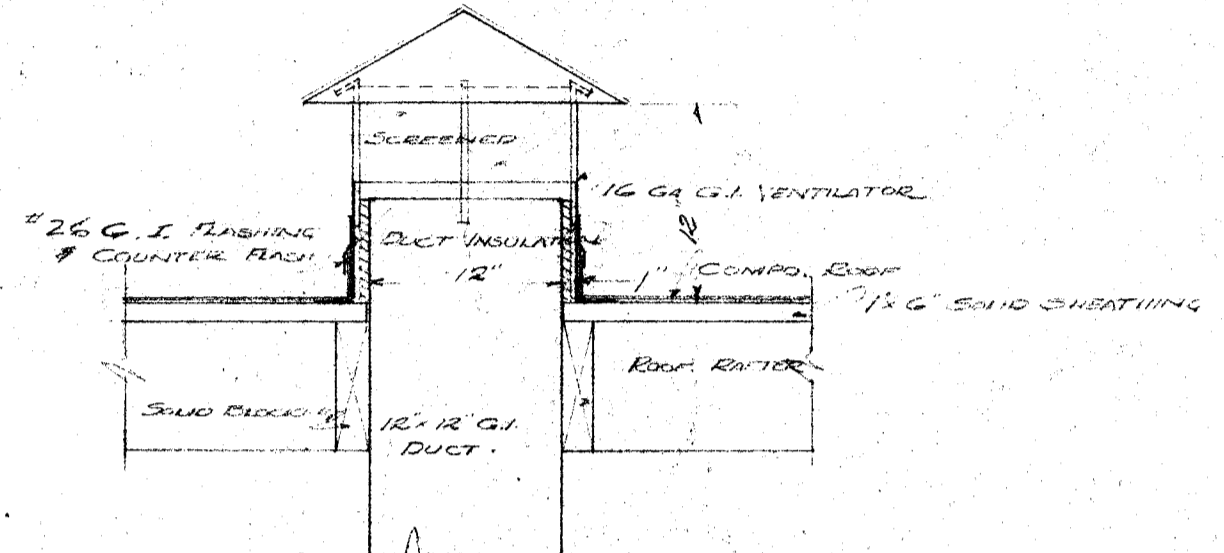 SCREENED
16 GA G.I. VENTILATOR
#26 G.I. FLASHING
& COUNTER FLASH
DUCT INSULATION
12"
12
1"
COMPO. ROOF
1"x6" SOLID SHEATHING
ROOF RAFTER
SOLID BLOCK'G
12"x12" G.I.
DUCT.